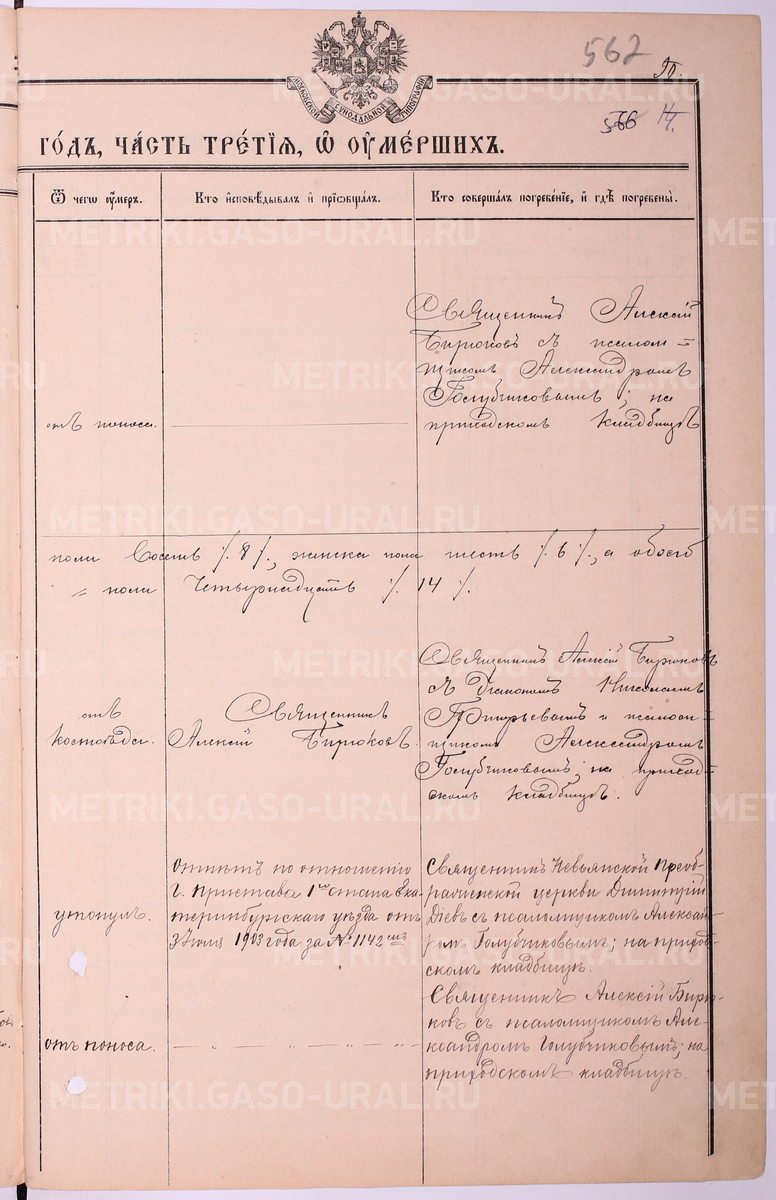 562
90.
566 14.
МОСКОВСКОЙ СУНОДАЛЬНОЙ ТИПОГРАФІИ
ГО́ДЪ, ЧА́СТЬ ТРЕ́ТІѦ, Ѽ ОУМЕ́РШИХЪ.
Ѿ чегѡ̀ оу́меръ.
Кто̀ и҆сповѣ́дывалъ и҆ прїѡбща́лъ.
Кто̀ соверша́лъ погребе́нїе, и҆ гдѣ̀ погребены̀.
Священникъ Алексій
Бирюковъ съ псалом=
щикомъ Александромъ
Голубчиковымъ; на
приходскомъ кладбищѣ
отъ поноса.
пола Восемь /. 8 /., женска пола шесть /. 6 /., а обоего
" пола Четырнадцать /. 14 /.
отъ
костоѣди.
Священникъ
Алексій Бирюковъ.
Священникъ Алексій Бирюковъ
съ Діакономъ Николаемъ
Григорьевымъ и псалом-
щикомъ Александромъ
Голубчиковымъ; на приход-
скомъ кладбищѣ.
утонулъ.
Отпѣтъ по отношенію
Г. Пристава 1го стана Ека-
теринбургскаго уѣзда отъ
3 Іюля 1903 года за № 1142мъ
Священникъ Невьянской Преоб-
раженской церкви Димитрій
Діевъ съ псаломщикомъ Алексан-
дромъ Голубчиковымъ; на приход-
скомъ кладбищѣ.
отъ поноса.
Священникъ Алексій Бирю-
ковъ съ псаломщикомъ Але-
ксандромъ Голубчиковымъ; на
приходскомъ кладбищѣ.
METRIKI.GASO-URAL.RU